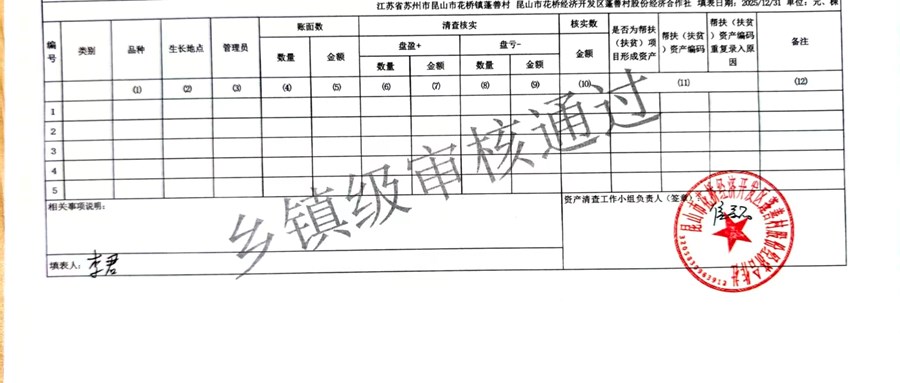 江苏省苏州市昆山市花桥镇蓬善村 昆山市花桥经济开发区蓬善村股份经济合作社 填表日期：2025/12/31 单位：元、棵
编号 类别 品种 生长地点 管理员 账面数 清查核实 核实数 是否为帮扶（扶贫）项目形成资产 帮扶（扶贫）资产编码 帮扶（扶贫）资产编码重复录入原因 备注
盘盈+ 盘亏-
数量 金额 数量 金额 数量 金额 金额
(1) (2) (3) (4) (5) (6) (7) (8) (9) (10) (11) (12)
1
2
3
4
5
乡镇级审核通过
相关事项说明：
资产清查工作小组负责人（签章）
昆山市花桥经济开发区蓬善村股份经济合作社
填表人：李君